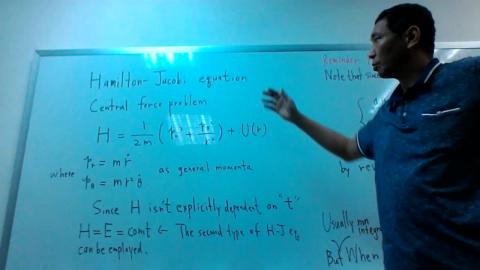 Hamilton-Jacobi equation
Central force problem
H = 1/2m (Pr² + Pθ²/r²) + U(r)
where Pr = mṙ
Pθ = mr²θ̇ as general momenta
Since H isn't explicitly dependent on "t"
H = E = const ← The second type of H-J eq
can be employed.
Reminder
Note that since
by rev
Usually
integr
But When